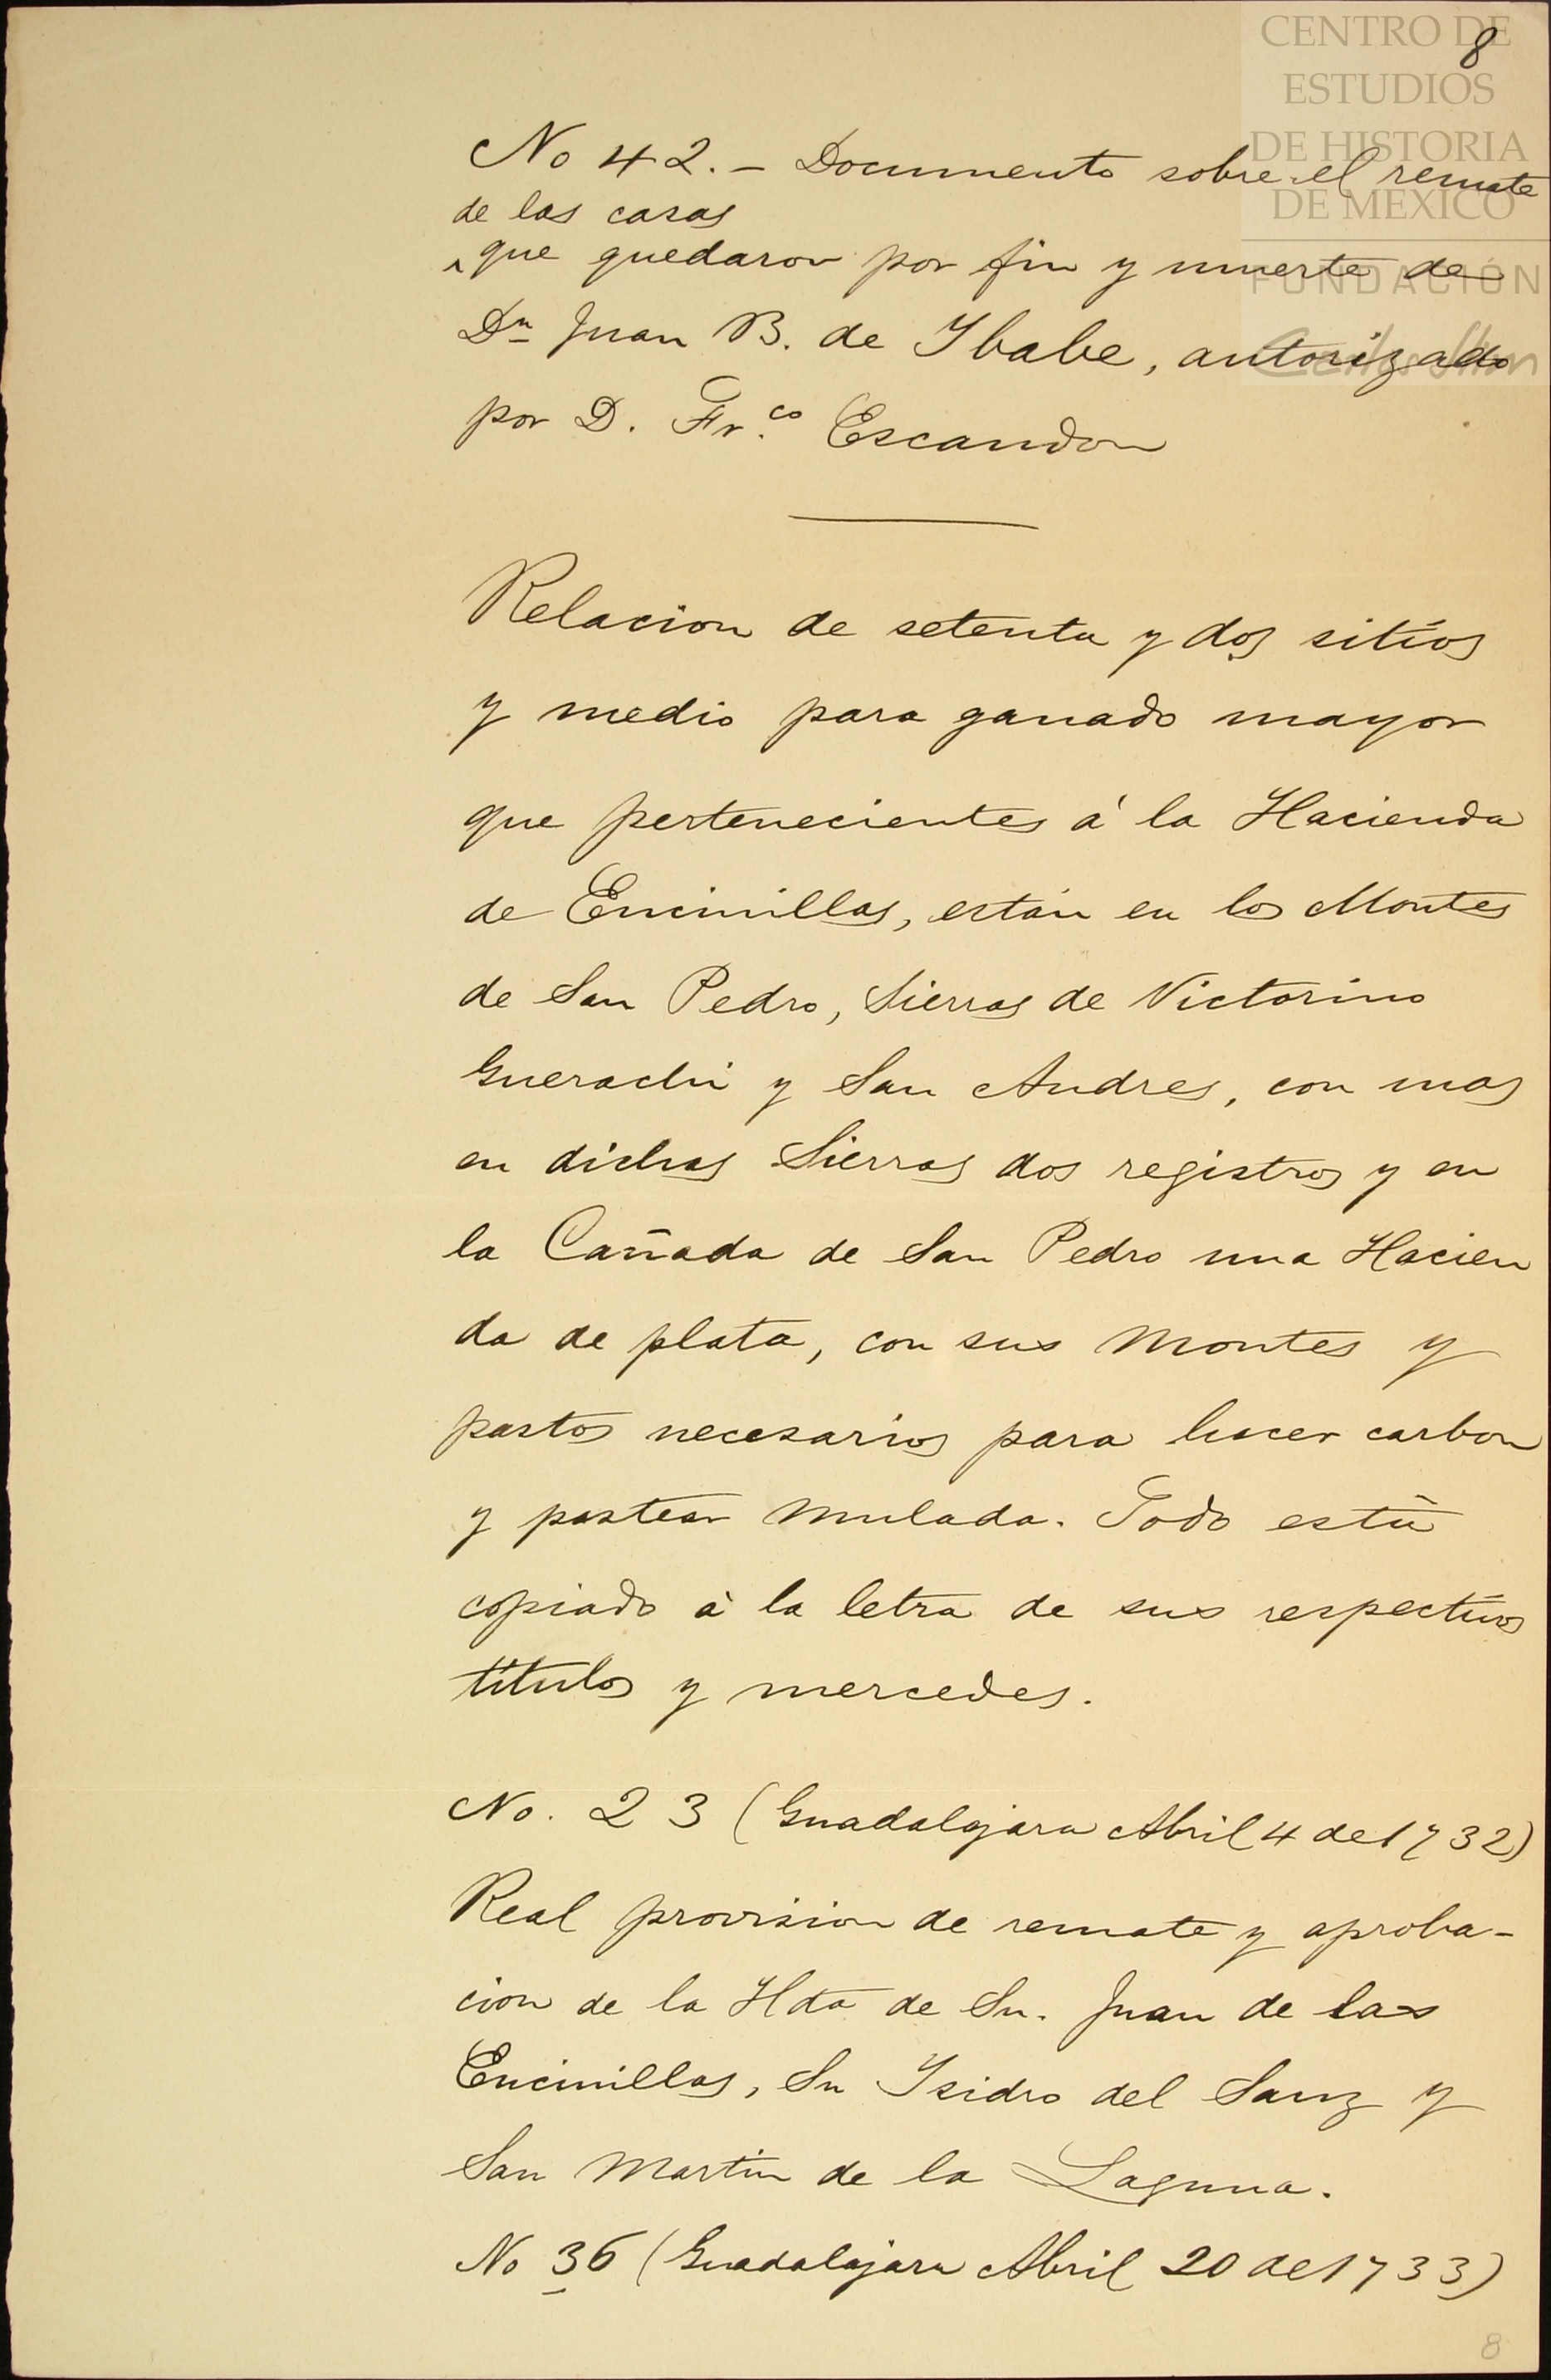 CENTRO DE
ESTUDIOS
DE HISTORIA
DE MEXICO
FUNDACIÓN
8
No 42.- Documento sobre el remate
de las casas
^ que quedaron por fin y muerte de
Dn Juan B. de Ybabe, autorizado
por D. Fr.co Escandon
Relacion de setenta y dos sitios
y medio para ganado mayor
que pertenecientes á la Hacienda
de Encinillas, están en los Montes
de San Pedro, Sierras de Victorino
Guerachi y San Andres, con mas
en dichas Sierras dos registros y en
la Cañada de San Pedro una Hacien
da de plata, con sus montes y
pastos necesarios para hacer carbon
y pastear mulada. Todo está
copiado à la letra de sus respectivos
titulos y mercedes.
No. 23 (Guadalajara Abril 4 de 1732)
Real provision de remate y aproba-
cion de la Hda de Sn. Juan de las
Encinillas, Sn Ysidro del Sauz y
San Martin de la Laguna.
No 36 (Guadalajara Abril 20 de 1733)
8